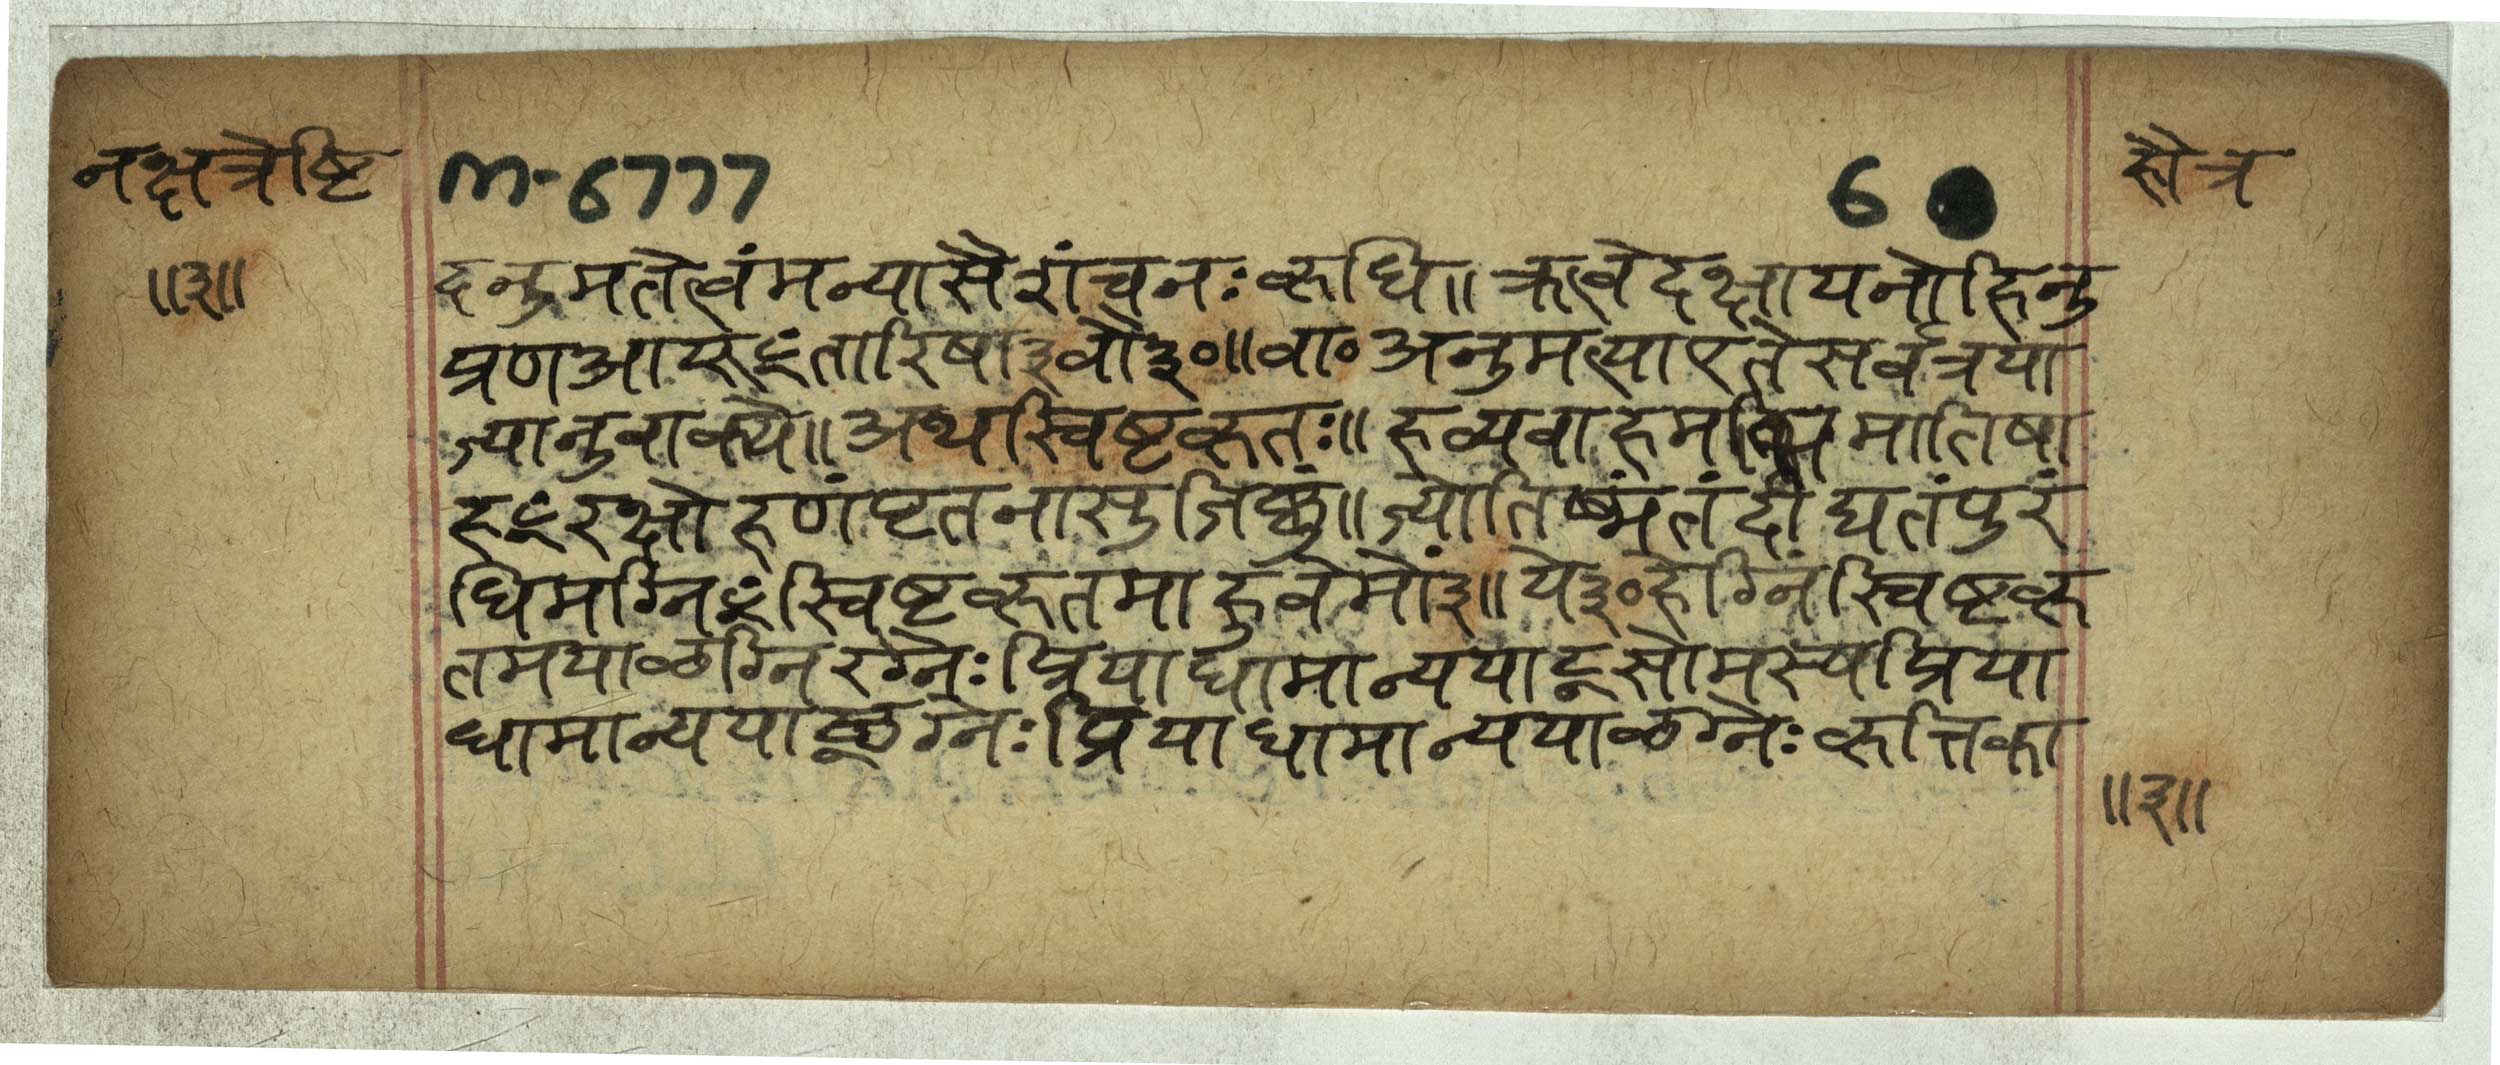 नक्षत्रेष्टि
M-6777
6
हौत्र
॥३॥
दनुमतेत्वंमन्यासैशंचनःकृधि॥ क्रत्वेदक्षायनोहिनु
प्रणआयूꣳतारिषा३वौ३०॥वा० अनुमत्याएतेसर्वत्रया
ज्यानुवाक्ये॥अथस्विष्टकृतः॥ हव्यवाहमभिमातिषा
हꣳरक्षोहणंपृतनासुजिष्णुं॥ज्योतिष्मंतंदीद्यतंपुरं
धिमग्निꣳस्विष्टकृतमाहुवेमों३॥ये३०हेग्निंस्विष्टकृ
तमयाळग्निरग्नेःप्रियाधामान्ययाट्सोमस्यप्रिया
धामान्ययाळग्नेःप्रियाधामान्ययाळग्नेःकृत्तिका
॥३॥